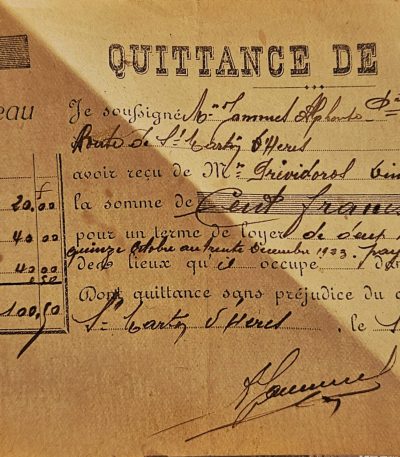 QUITTANCE DE
eau
Je soussigné Mr Jammes Alphonse
Route de St Martin d'Hères
avoir reçu de Mr
la somme de Cent francs
pour un terme de loyer de deux
quinze Octobre au trente Décembre 1923. pay
des lieux qu'il occupe
Dont quittance sans préjudice du
St Martin d'Hères, le
20,00
40.00
40.00
0.50
100,50